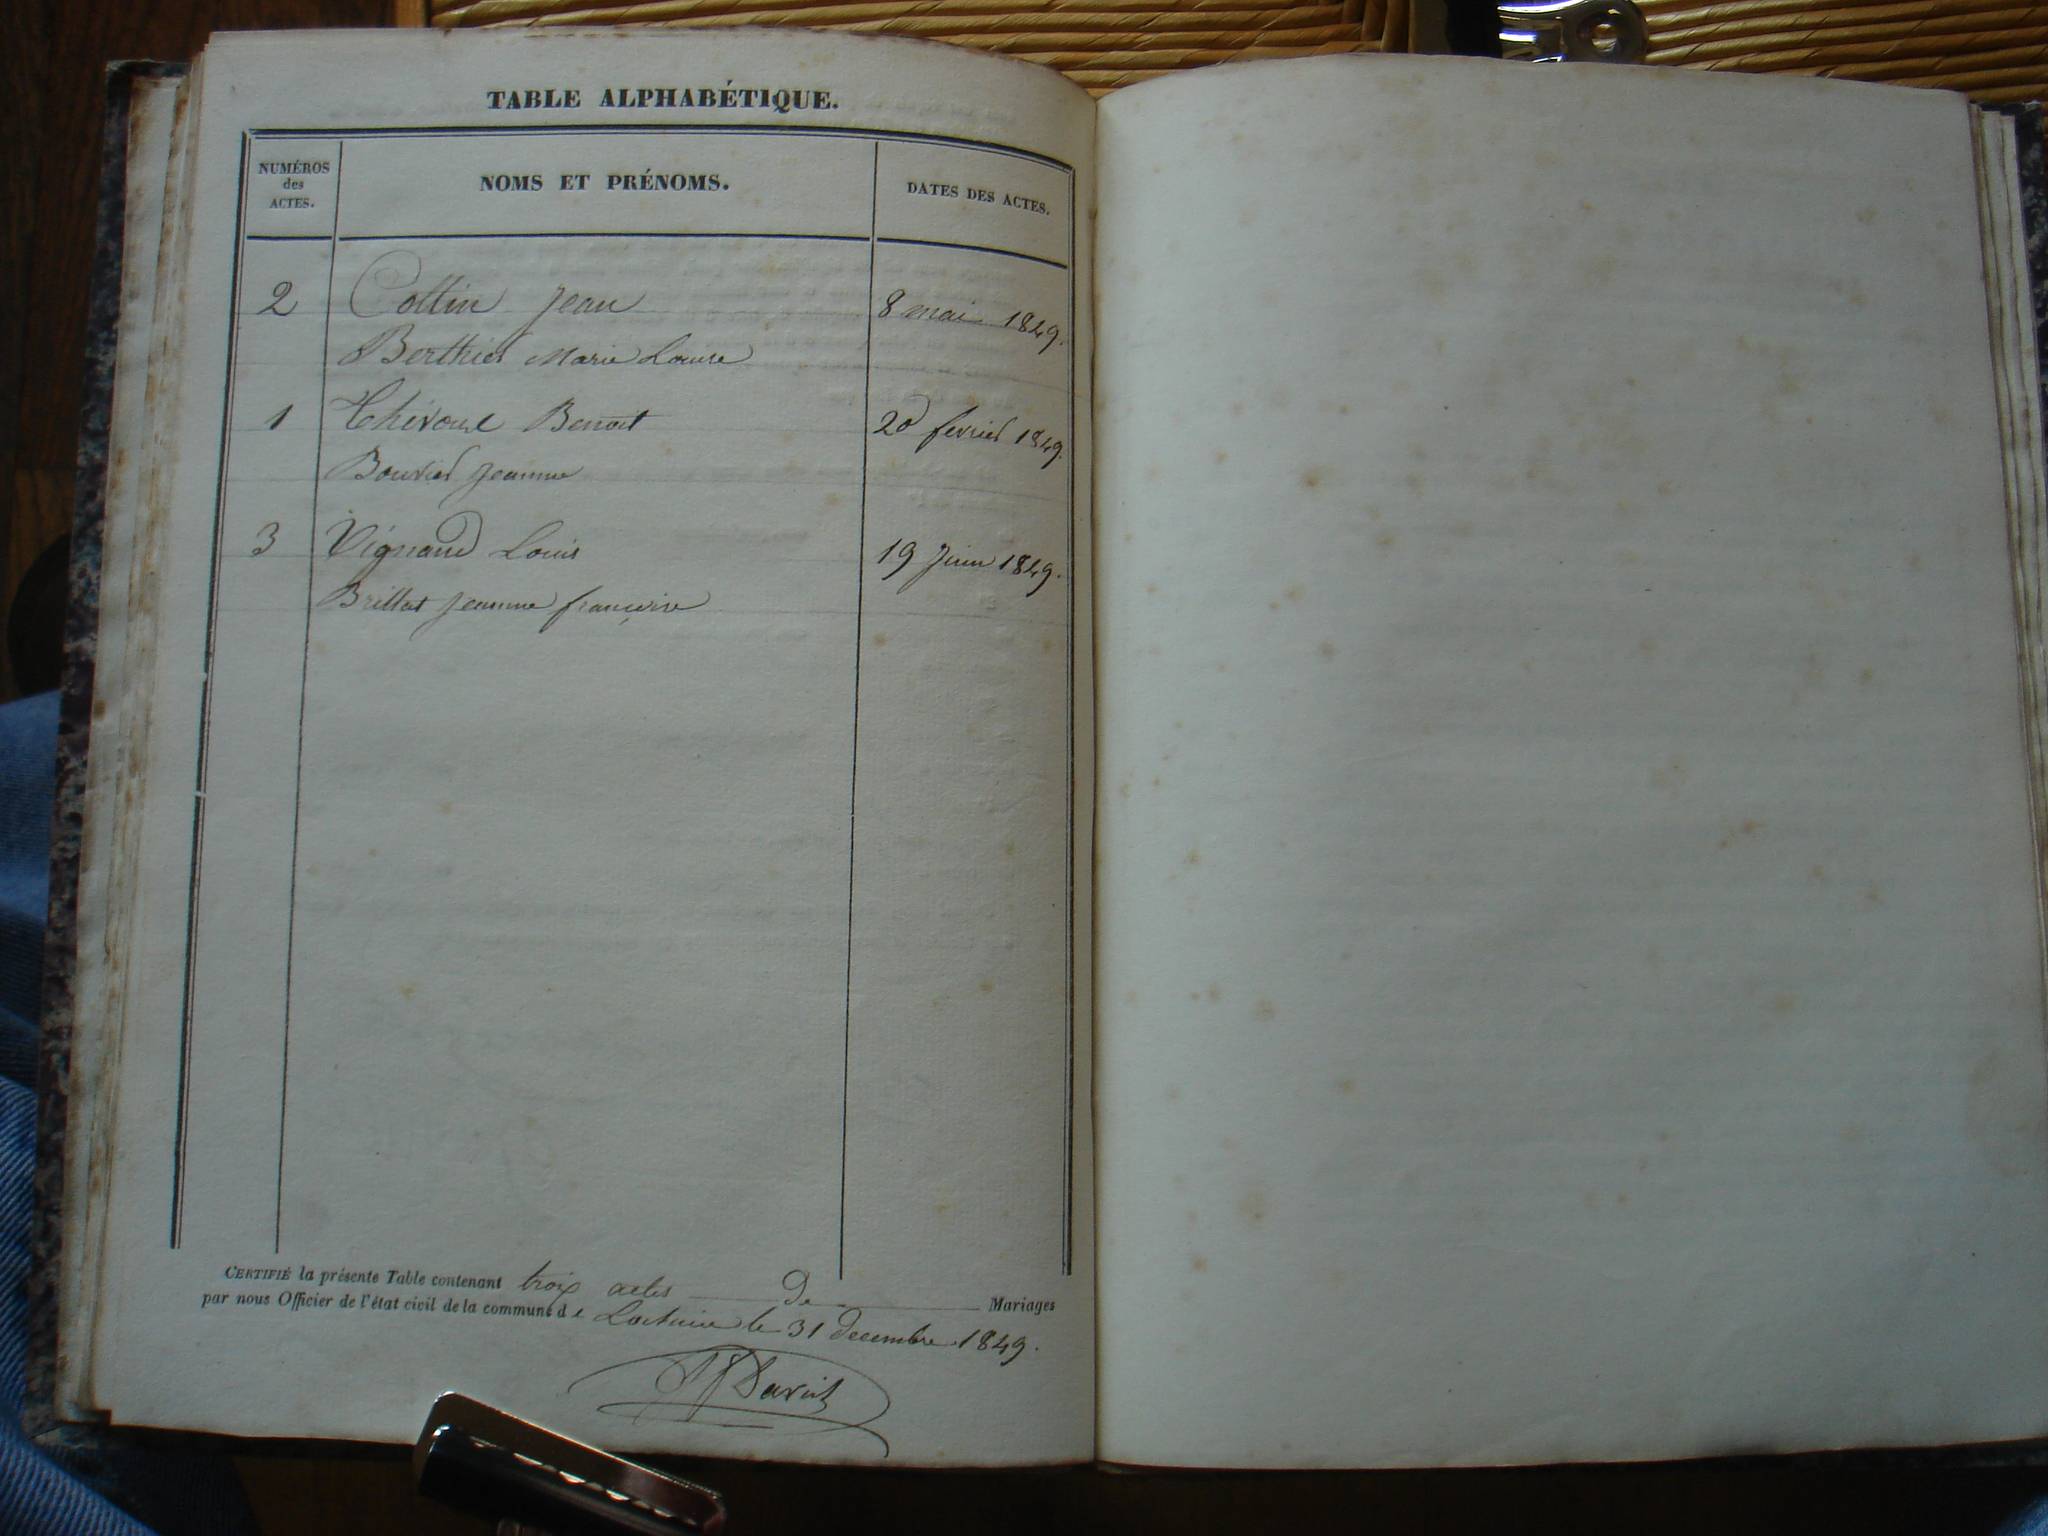 TABLE ALPHABÉTIQUE.
NUMÉROS
des
ACTES.
NOMS ET PRÉNOMS.
DATES DES ACTES.
2 Collin Jean 8 mai 1849.
Berthier Marie Louise
1 Benoit 20 fevrier 1849.
Bouvier Jeanne
3 Vignand Louis 19 Juin 1849.
Brillat Jeanne françoise
CERTIFIÉ la présente Table contenant trois actes de Mariages
par nous Officier de l'état civil de la commune de le 31 decembre 1849.